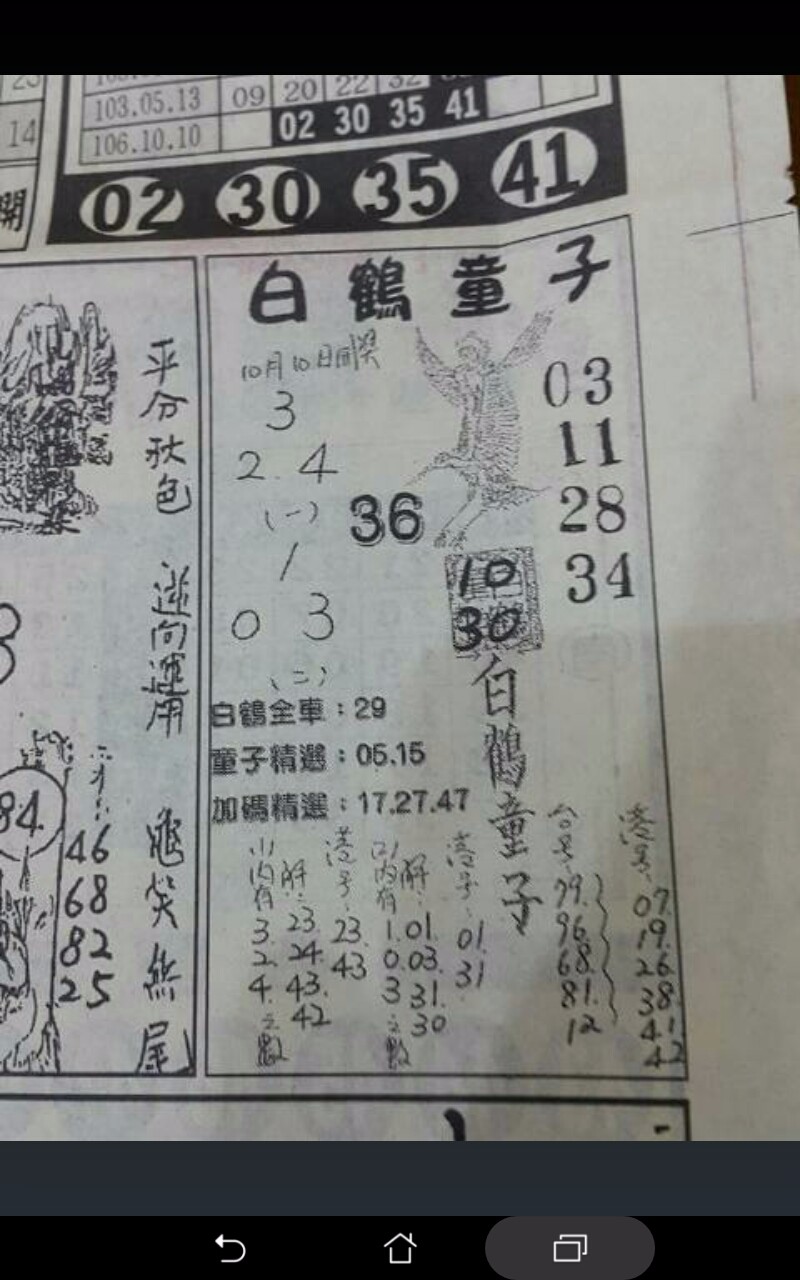 103.05.13 09 20 22 32
106.10.10 02 30 35 41
14
開
02 30 35 41
白鶴童子
10月10日開獎
3
2.4
(一)
1
0 3
(二)
36
03
11
28
34
10
30
白鶴童子
白鶴全車：29
童子精選：05.15
加碼精選：17.27.47
(1)內有
3.
2.
4.
之數
解:
23.
24.
43.
42
港号:
23.
43
(2)內有
1.
0.
3
之數
解:
01.
03.
31.
30
港号:
01.
31
台号:
79.
96.
68.
81.
12
港号:
07.
19.
26
38.
41
42
平分秋色
逆向運用
龜笑無尾
84
46
68
82
25